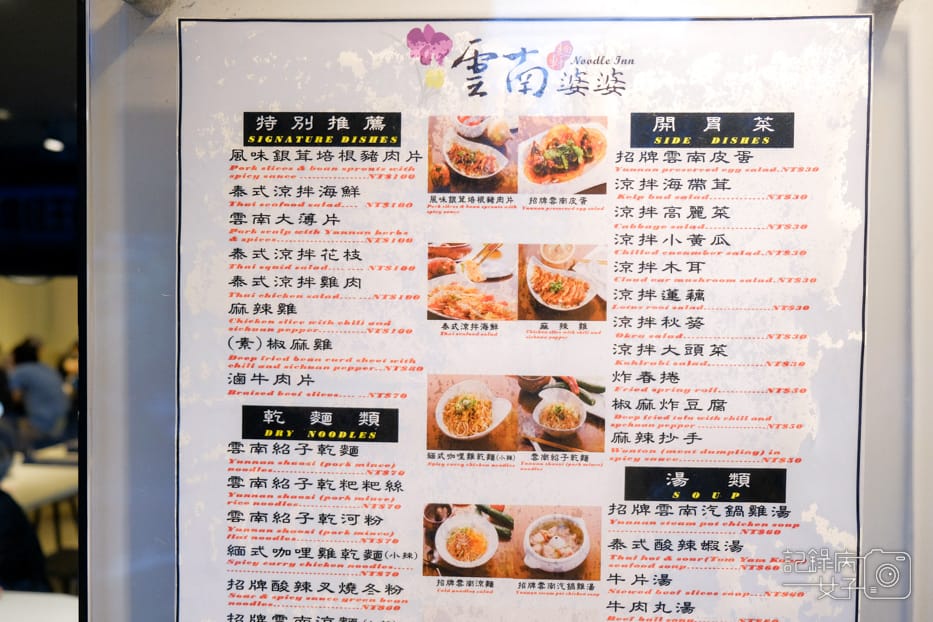 雲南
婆婆
Noodle Inn
特別推薦
SIGNATURE DISHES
風味銀茸培根豬肉片
Pork slices & bean sprouts with
spicy sauce ..................NT$100
泰式涼拌海鮮
Thai seafood salad..........NT$100
雲南大薄片
Pork scalp with Yunnan herbs
& spices......................NT$100
泰式涼拌花枝
Thai squid salad..............NT$100
泰式涼拌雞肉
Thai chicken salad...........NT$100
麻辣雞
Chicken slice with chili and
sichuan pepper...............NT$100
(素)椒麻雞
Deep fried bean curd sheet with
chili and sichuan pepper...NT$80
滷牛肉片
Braised beef slices..........NT$
乾麵類
DRY NOODLES
雲南紹子乾麵
Yunnan shaozi (pork mince)
noodles........................NT$70
雲南紹子乾粑粑絲
Yunnan shaozi (pork mince)
rice noodles...................NT$70
雲南紹子乾河粉
Yunnan shaozi (pork mince)
Hot noodles...................NT$70
緬式咖哩雞乾麵(小辣)
Spicy curry chicken noodles
.................................NT$70
招牌酸辣叉燒冬粉
Sour & spicy sauce green bean
noodles........................NT$60
招牌雲南涼麵
風味銀茸培根豬肉片
Pork slices & bean sprouts with
spicy sauce
招牌雲南皮蛋
Yunnan preserved egg salad
泰式涼拌海鮮
Thai seafood salad
麻辣雞
Chicken slice with chili and
sichuan pepper
緬式咖哩雞乾麵(小辣)
Spicy curry chicken noodles
雲南紹子乾麵
Yunnan shaozi (pork mince)
noodles
招牌雲南涼麵
Cold noodles salad
招牌雲南汽鍋雞湯
Yunnan steam pot chicken soup
開胃菜
SIDE DISHES
招牌雲南皮蛋
Yunnan preserved egg salad.NT$30
涼拌海帶茸
Kelp bud salad...............NT$30
涼拌高麗菜
Cabbage salad................NT$30
涼拌小黃瓜
Chilled cucumber salad.....NT$30
涼拌木耳
Cloud ear mushroom salad.NT$30
涼拌蓮藕
Lotus root salad.............NT$30
涼拌秋葵
Okra salad....................NT$30
涼拌大頭菜
Kohlrabi salad................NT$30
炸春捲
Fried spring roll.............NT$50
椒麻炸豆腐
Deep fried tofu with chili and
sichuan pepper...............NT$50
麻辣抄手
Wonton (meat dumpling) in
spicy sauce...................NT$50
湯類
SOUP
招牌雲南汽鍋雞湯
Yunnan steam pot chicken soup
.................................NT$60
泰式酸辣蝦湯
Thai hot & sour (Tom Yam Kung)
seafood soup
牛片湯
Stewed beef slices soup...NT$60
牛肉丸湯
Beef ball soup
記錄內
女子